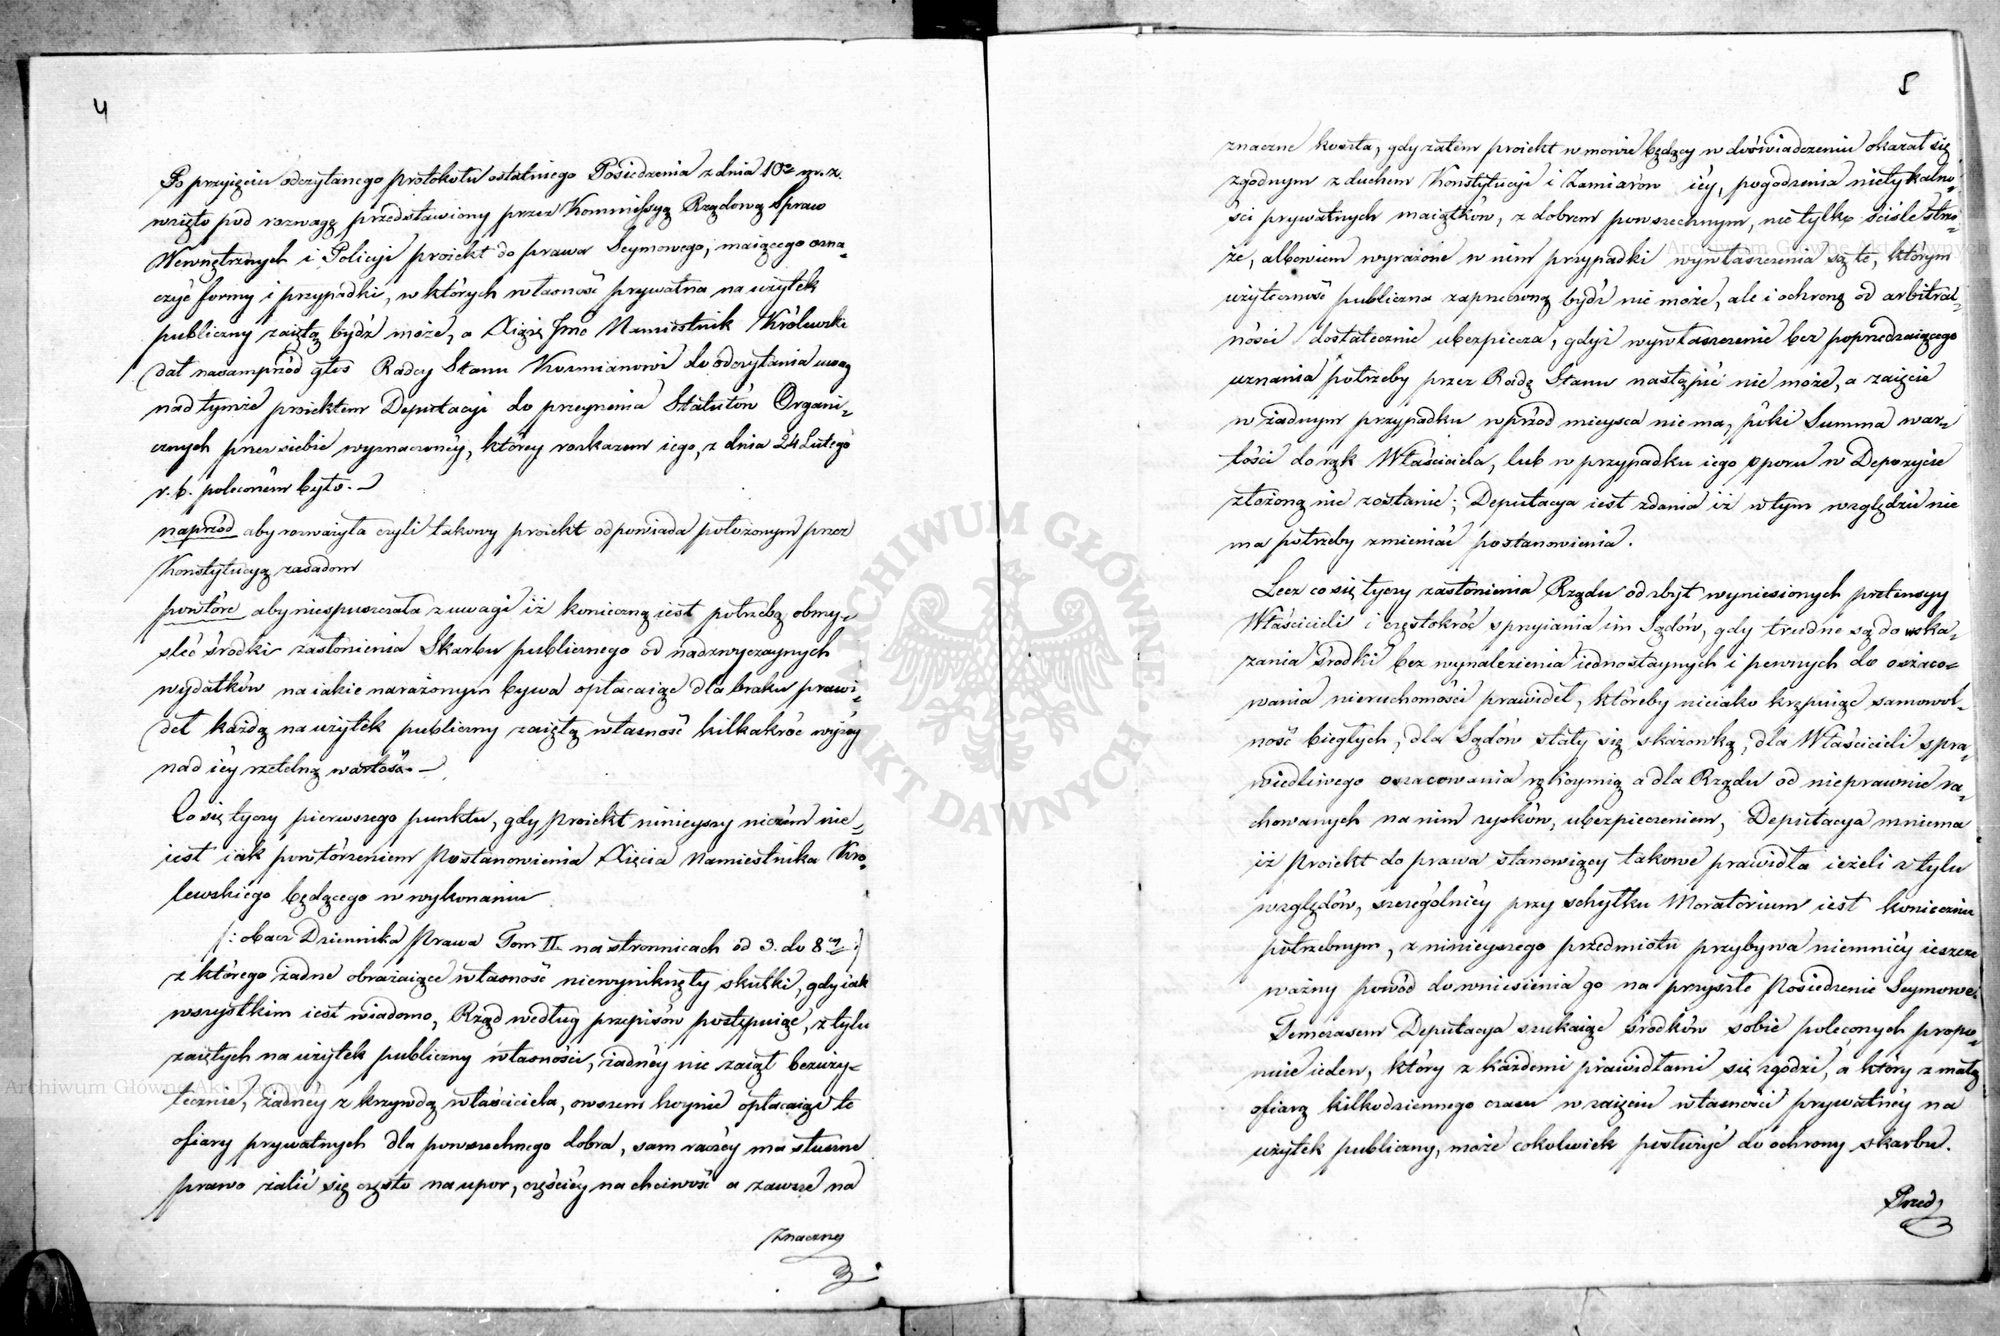 4
Po przyięciu odczytanego protokołu ostatniego Posiedzenia z dnia 10go m. z.
wzięto pod rozwagę przedstawiony przez Kommissyą Rządową Spraw
Wewnętrznych i Policyi proiekt do prawa Seymowego, maiącego ozna-
czyć formy i przypadki, w których własność prywatna na użytek
publiczny zaiętą bydź może, a Xiążę Jmć Namiestnik Królewski
dał nasamprzód głos Radcy Stanu Kozmianowi do odczytania uwag
nad tymże proiektem Deputacyi do przeyrzenia Statutów Organi-
cznych przez siebie wyznaczonéy, któréy rozkazem iego, z dnia 24 Lutego
r. b. poleconém było. —
naprzód aby rozważyła czyli takowy proiekt odpowiada położonym przez
Konstytucyą zasadom
powtóre aby niespuszczała z uwagi iż konieczną iest potrzebą obmy-
śleć środki zasłonienia Skarbu publicznego od nadzwyczaynych
wydatków na iakie narażonym bywa opłacaiąc dla braku prawi-
deł każdą na użytek publiczny zaiętą własność kilkakroć wyżéy
nad iéy rzetelną wartość. —
Co się tyczy pierwszego punktu, gdy proiekt ninieyszy niczém nie-
iest iak powtórzeniem Postanowienia Xięcia Namiestnika Kró-
lewskiego będącego w wykonaniu
/: obacz Dziennika Prawa Tom II. na stronnicach od 3. do 8éy :/
z którego żadne obrażaiące własność niewyniknęły skutki, gdy iak
wszystkim iest wiadomo, Rząd według przepisów postępuiąc, z tylu
zaiętych na użytek publiczny własności, żadnéy nie zaiął bezuży-
tecznie, żadnéy z krzywdą właściciela, owszem hoynie opłacaiąc te
ofiary prywatnych dla powszechnego dobra, sam raczéy ma słuszne
prawo żalić się często na upor, częściéy na chciwość a zawsze na
znaczne
5
znaczne koszta, gdy zatém proiekt w mowie będący w doświadczeniu okazał się
zgodnym z duchem Konstytucyi i Zamiarów iéy, pogodzenia nietykalno-
ści prywatnych maiątków, z dobrem powszechnym, nie tylko ściśle strze-
że, albowiem wyrażone w nim przypadki wywłaszczenia są te, którym
użyteczność publiczna zaprzeczoną bydź nie może, ale i ochronę od arbitral-
ności dostatecznie ubezpiecza, gdyż wywłaszczenie bez poprzedzaiącego
uznania potrzeby przez Radę Stanu nastąpić nie może, a zaięcie
w żadnym przypadku wprzód mieysca nie ma, póki Summa war-
tości do rąk Właściciela, lub w przypadku iego oporu w Depozycie
złożoną nie zostanie; Deputacya iest zdania iż w tym względzie nie
ma potrzeby zmieniać postanowienia.
Lecz co się tyczy zasłonienia Rządu od zbyt wyniesionych pretensyy
Właścicieli i częstokróć sprzyiania im Sądów, gdy trudne są do wska-
zania środki bez wynalezienia iednostaynych i pewnych do oszaco-
wania nieruchomości prawideł, któreby nieiako krępuiąc samowol-
ność biegłych, dla Sądów stały się skazówką, dla Właścicieli spra-
wiedliwego oszacowania rękoymią a dla Rządu od nieprawnie ra-
chowanych na nim zysków, ubezpieczeniem, Deputacya mniema
iż Proiekt do prawa stanowiący takowe prawidła ieżeli z tylu
względów, szczególniéy przy schyłku Moratorium iest koniecznie
potrzebnym, z ninieyszego przedmiotu przybywa niemniéy ieszcze
ważny powód do wniesienia go na przyszłe Posiedzenie Seymowe.
Tymczasem Deputacya szukaiąc środków sobie poleconych propo-
nuie ieden, który z każdemi prawidłami się zgodzi, a który z małą
ofiarą kilkodziennego czasu w zaięciu własności prywatnéy na
użytek publiczny, może cokolwiek posłużyć do ochrony skarbu.
Przed
Archiwum Główne Akt Dawnych
Archiwum Główne Akt Dawnych
ARCHIWUM GŁÓWNE AKT DAWNYCH